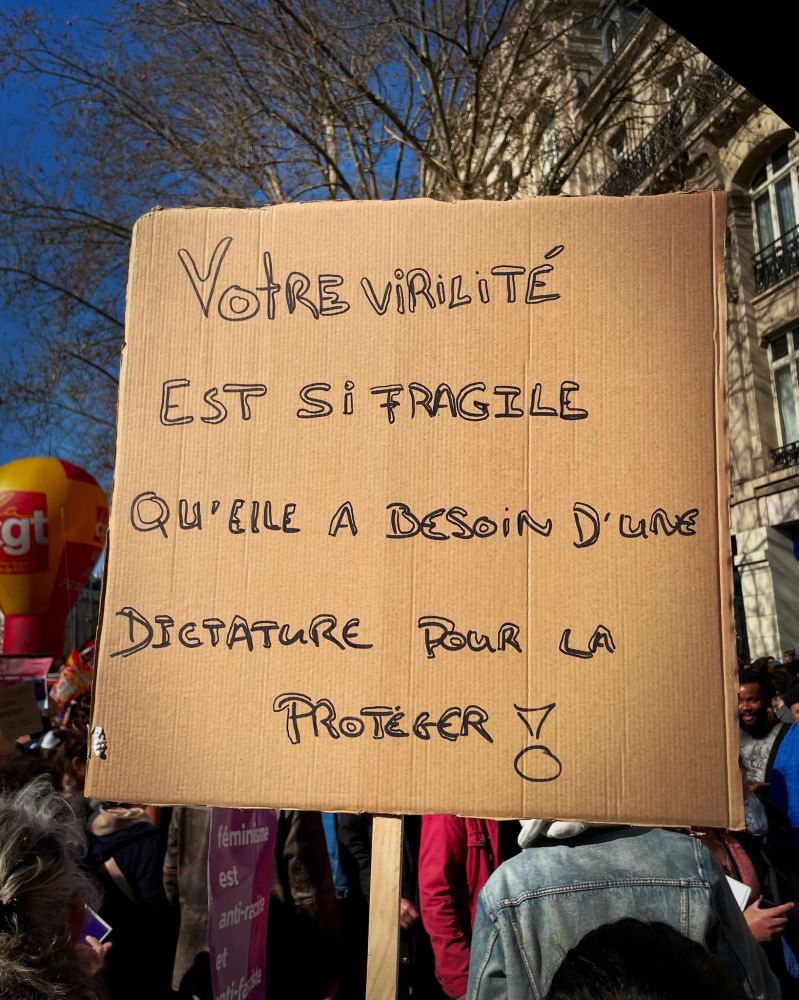 VOtRE VIRILITÉ
EST Si FRAGILE
QU'ELLE A BESOIN D'UNE
DICTATURE POUR LA
PROTÉGER !
cgt
féminisme
est
anti-raciste
et
anti-fasciste